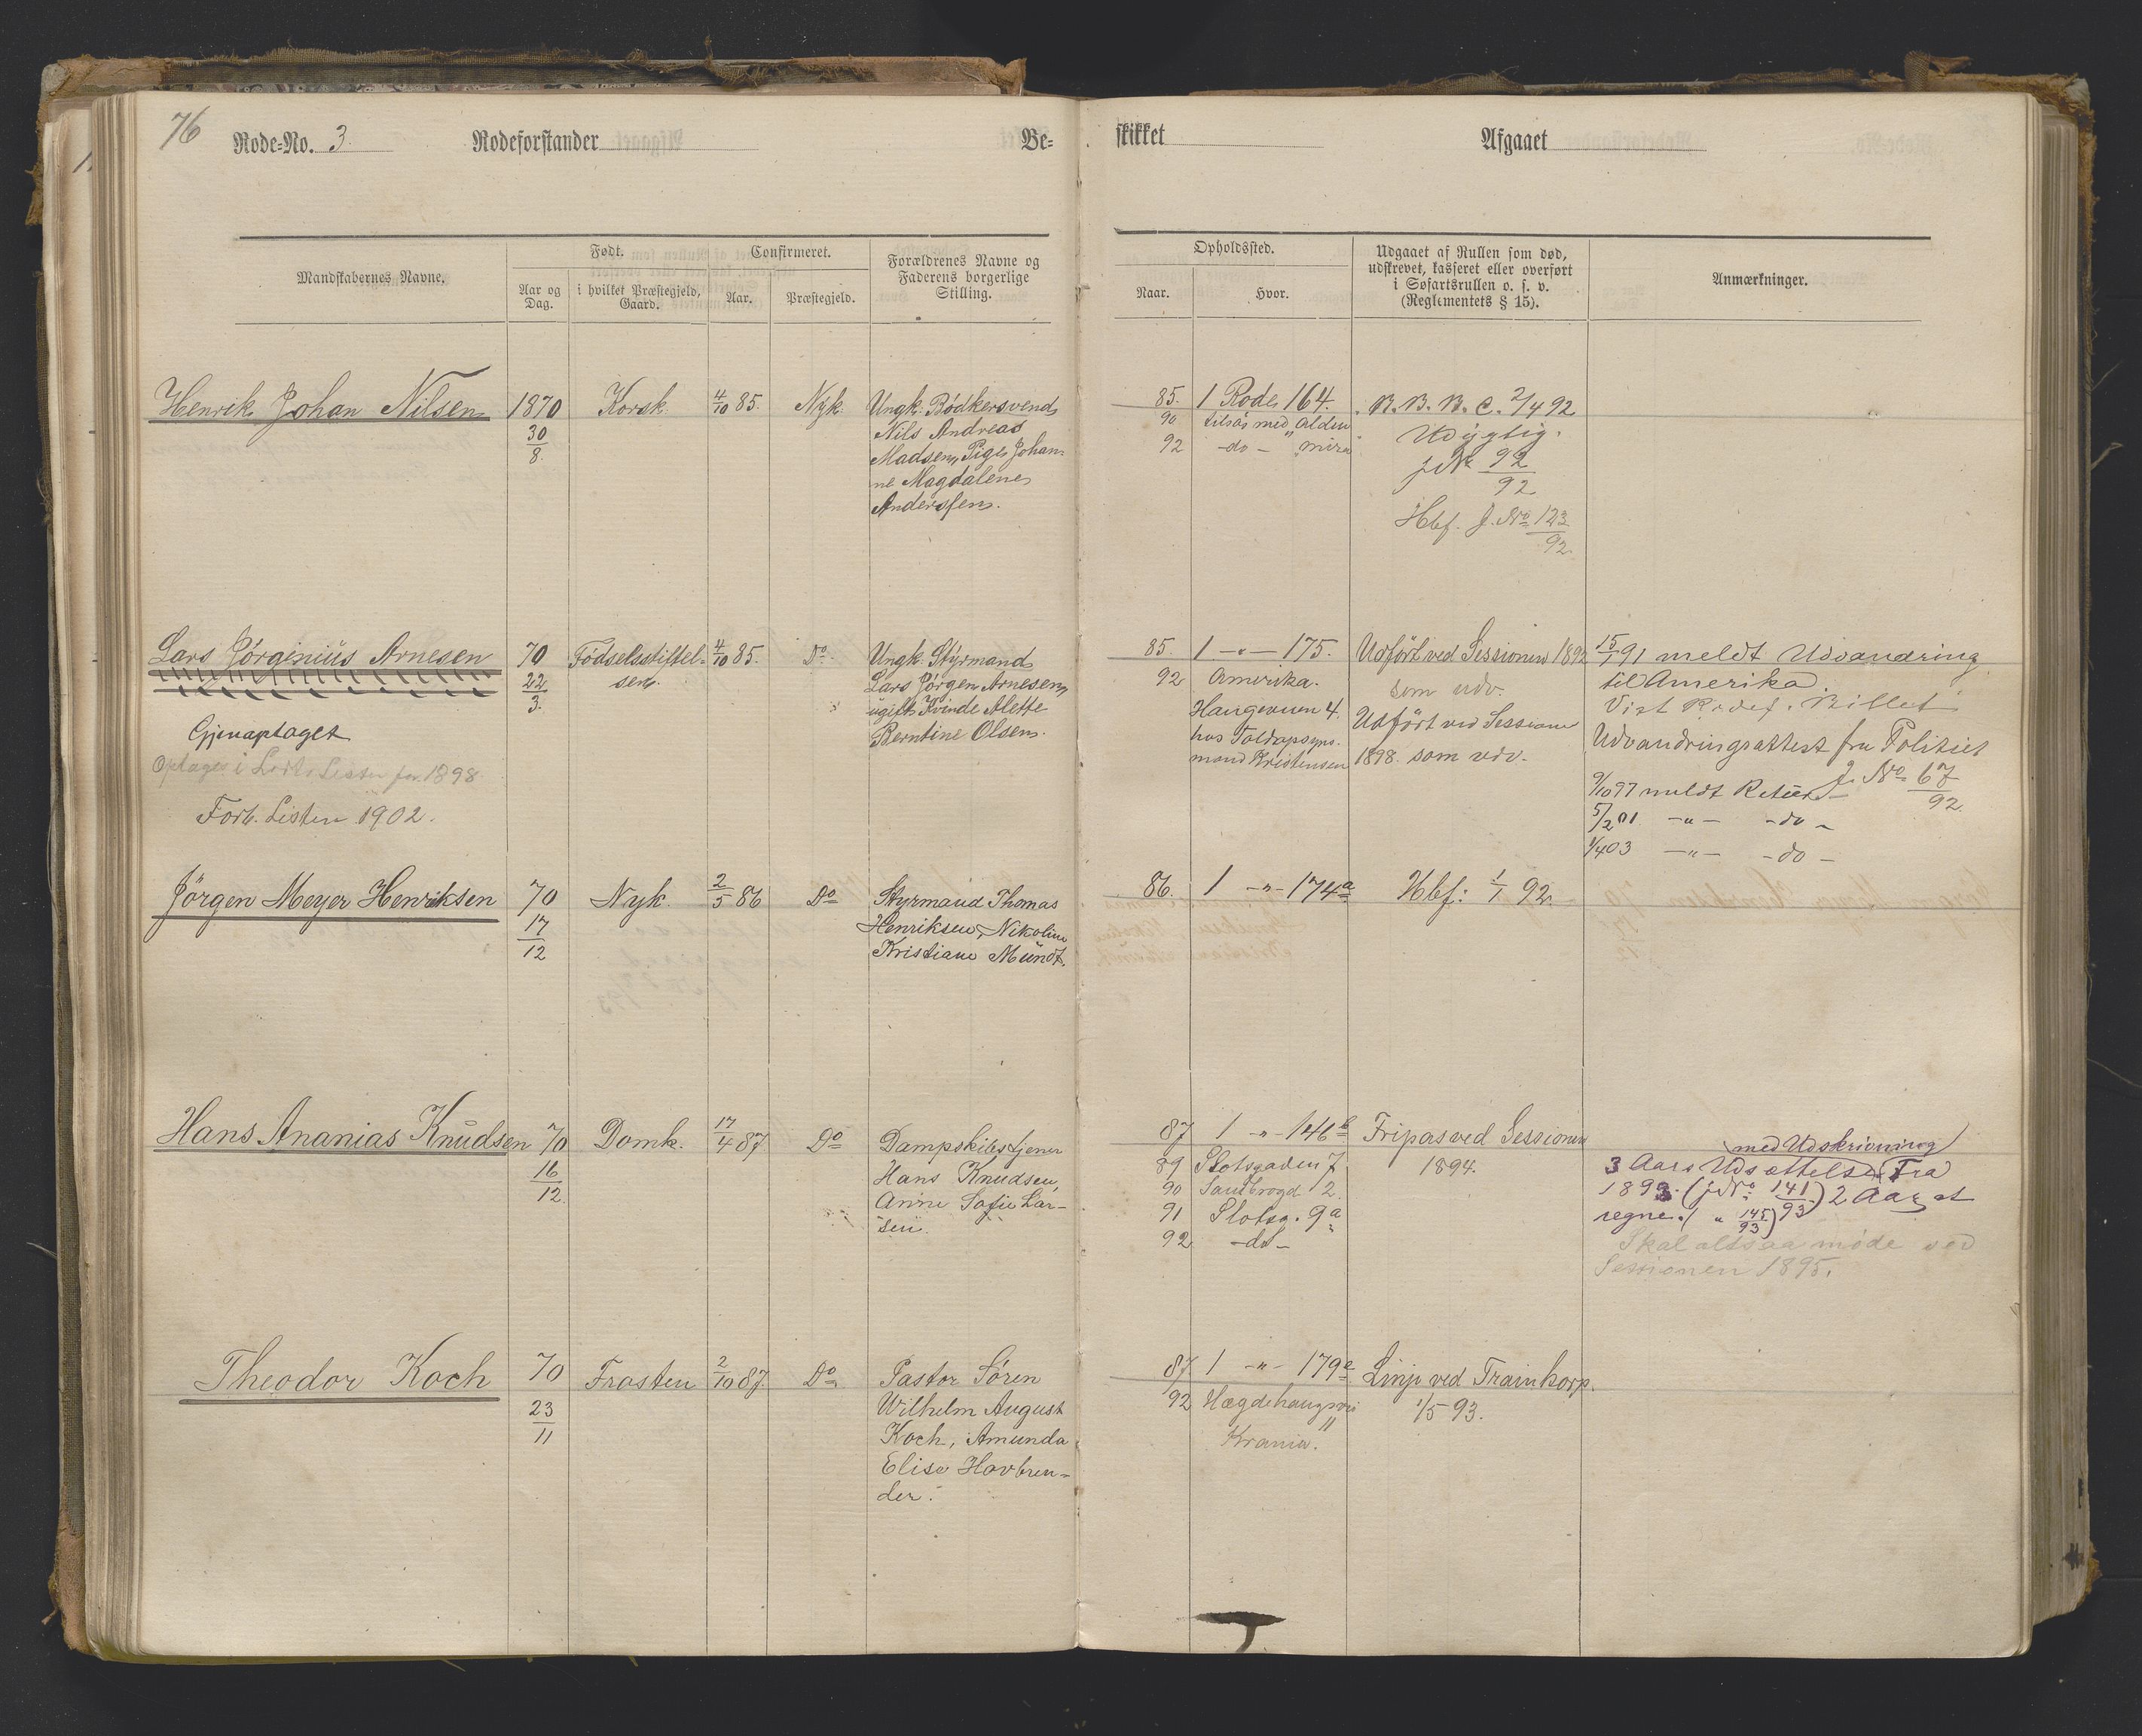 76
Rode-No. 3. Rodeforstander Be-
skikket Afgaaet
Mandskabernes Navne.
Født.
Aar og Dag.
i hvilket Præstegjeld, Gaard.
Confirmeret.
Aar.
Præstegjeld.
Forældrenes Navne og
Faderens borgerlige
Stilling.
Opholdssted.
Naar.
Hvor.
Udgaaet af Rullen som død,
udskrevet, kasseret eller overført
i Søfartsrullen o. s. v.
(Reglementets § 15).
Anmærkninger.
Henrik Johan Nilsen
1870
30/8.
Korsk.
4/10 85.
Nyk.
Ungk. Bødkersvend
Nils Andreas
Madsen, Pige Johan-
ne Magdalene
Anderssen.
85. 1 Rode 164.
90 tilsös med Alden
92 -do- " mira
B. B. B. C. 2/4 92
Udygtig.
jNo 92/92
Hbf. J. No 123/92.
Lars Jörginius Arnesen
Gjenoptaget
Optages i Lodtn Listen for 1898
Forb. Listen 1902.
70
22/3.
Födselsstiftel-
sen.
4/10 85.
Do.
Ungk. Styrmand
Lars Jörgen Arnesen,
ugift Kvinde Alette
Berntine Olsen.
85. 1 -"- 175.
92 Amerika.
Haugeveien 4.
hos Toldopsyns-
mand Kristensen
Udfört ved Sessionen 1892
som udv.
Udfört ved Sessionen
1898 som udv.
15/1 91 meldt Udvandring
til Amerika.
Vist Rodef. Billet
Udvandringsattest fra Politiet
J. No 67/92
9/10 97 meldt Retur -
5/2 01 -"- -do-
1/4 03 -"- -do-
Jörgen Meyer Henriksen
70
17/12
Nyk.
2/5 86
Do
Styrmand Thomas
Henriksen, Nikoline
Kristiane Mündt.
86. 1 -"- 174a
Hbf: 1/1 92.
Hans Ananias Knudsen
70
16/12.
Domk.
17/4 87
Do
Dampskibstjener
Hans Knudsen,
Anne Sofie Lar-
sen.
87 1 -"- 146b
89 Slotsgaden 7
90 Sandbrogd 2
91 Slotsg. 9a
92 -do-
Fripas ved Sessionen
1894.
med Udskrivning
3 Aars Udsættelse fra
1893. (jNo 141/93) 2 Aar at
regne. ( " 145/93)
Skal altsaa møde ved
Sessionen 1895.
Theodor Koch
70
23/11
Frosten
2/10 87.
Do
Pastor Sören
Wilhelm August
Koch, Amunda
Elise Havbren-
der.
87 1 -"- 179e
92 Hægdehaugsvei
11
Krania.
Linje ved Trainkorp.
1/5 93.